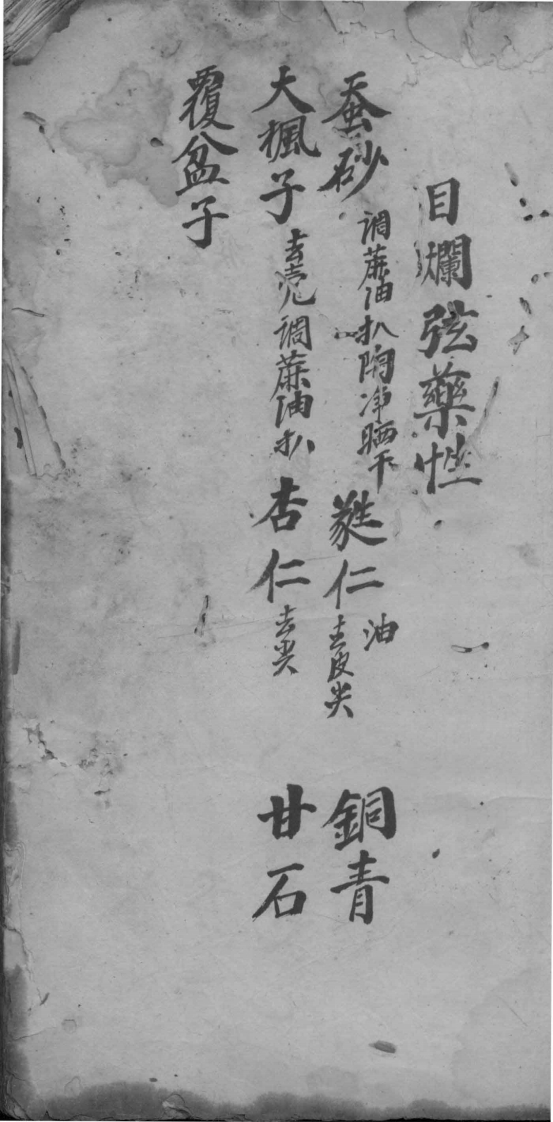 目爛弦藥性
蚕砂 调蔴油扒陶净晒干 蕤仁 油去皮尖 銅青
大楓子 去壳调蔴油扒 杏仁 去尖 甘石
覆盆子